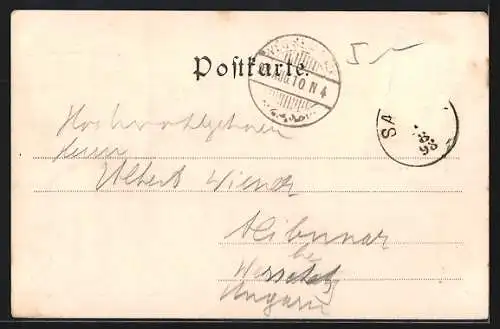 Postkarte.
5
10 N 4
SA
8
98
Hochwohlgeboren
Herrn
Albert
Alibunar
bei
Werschetz
Ungarn